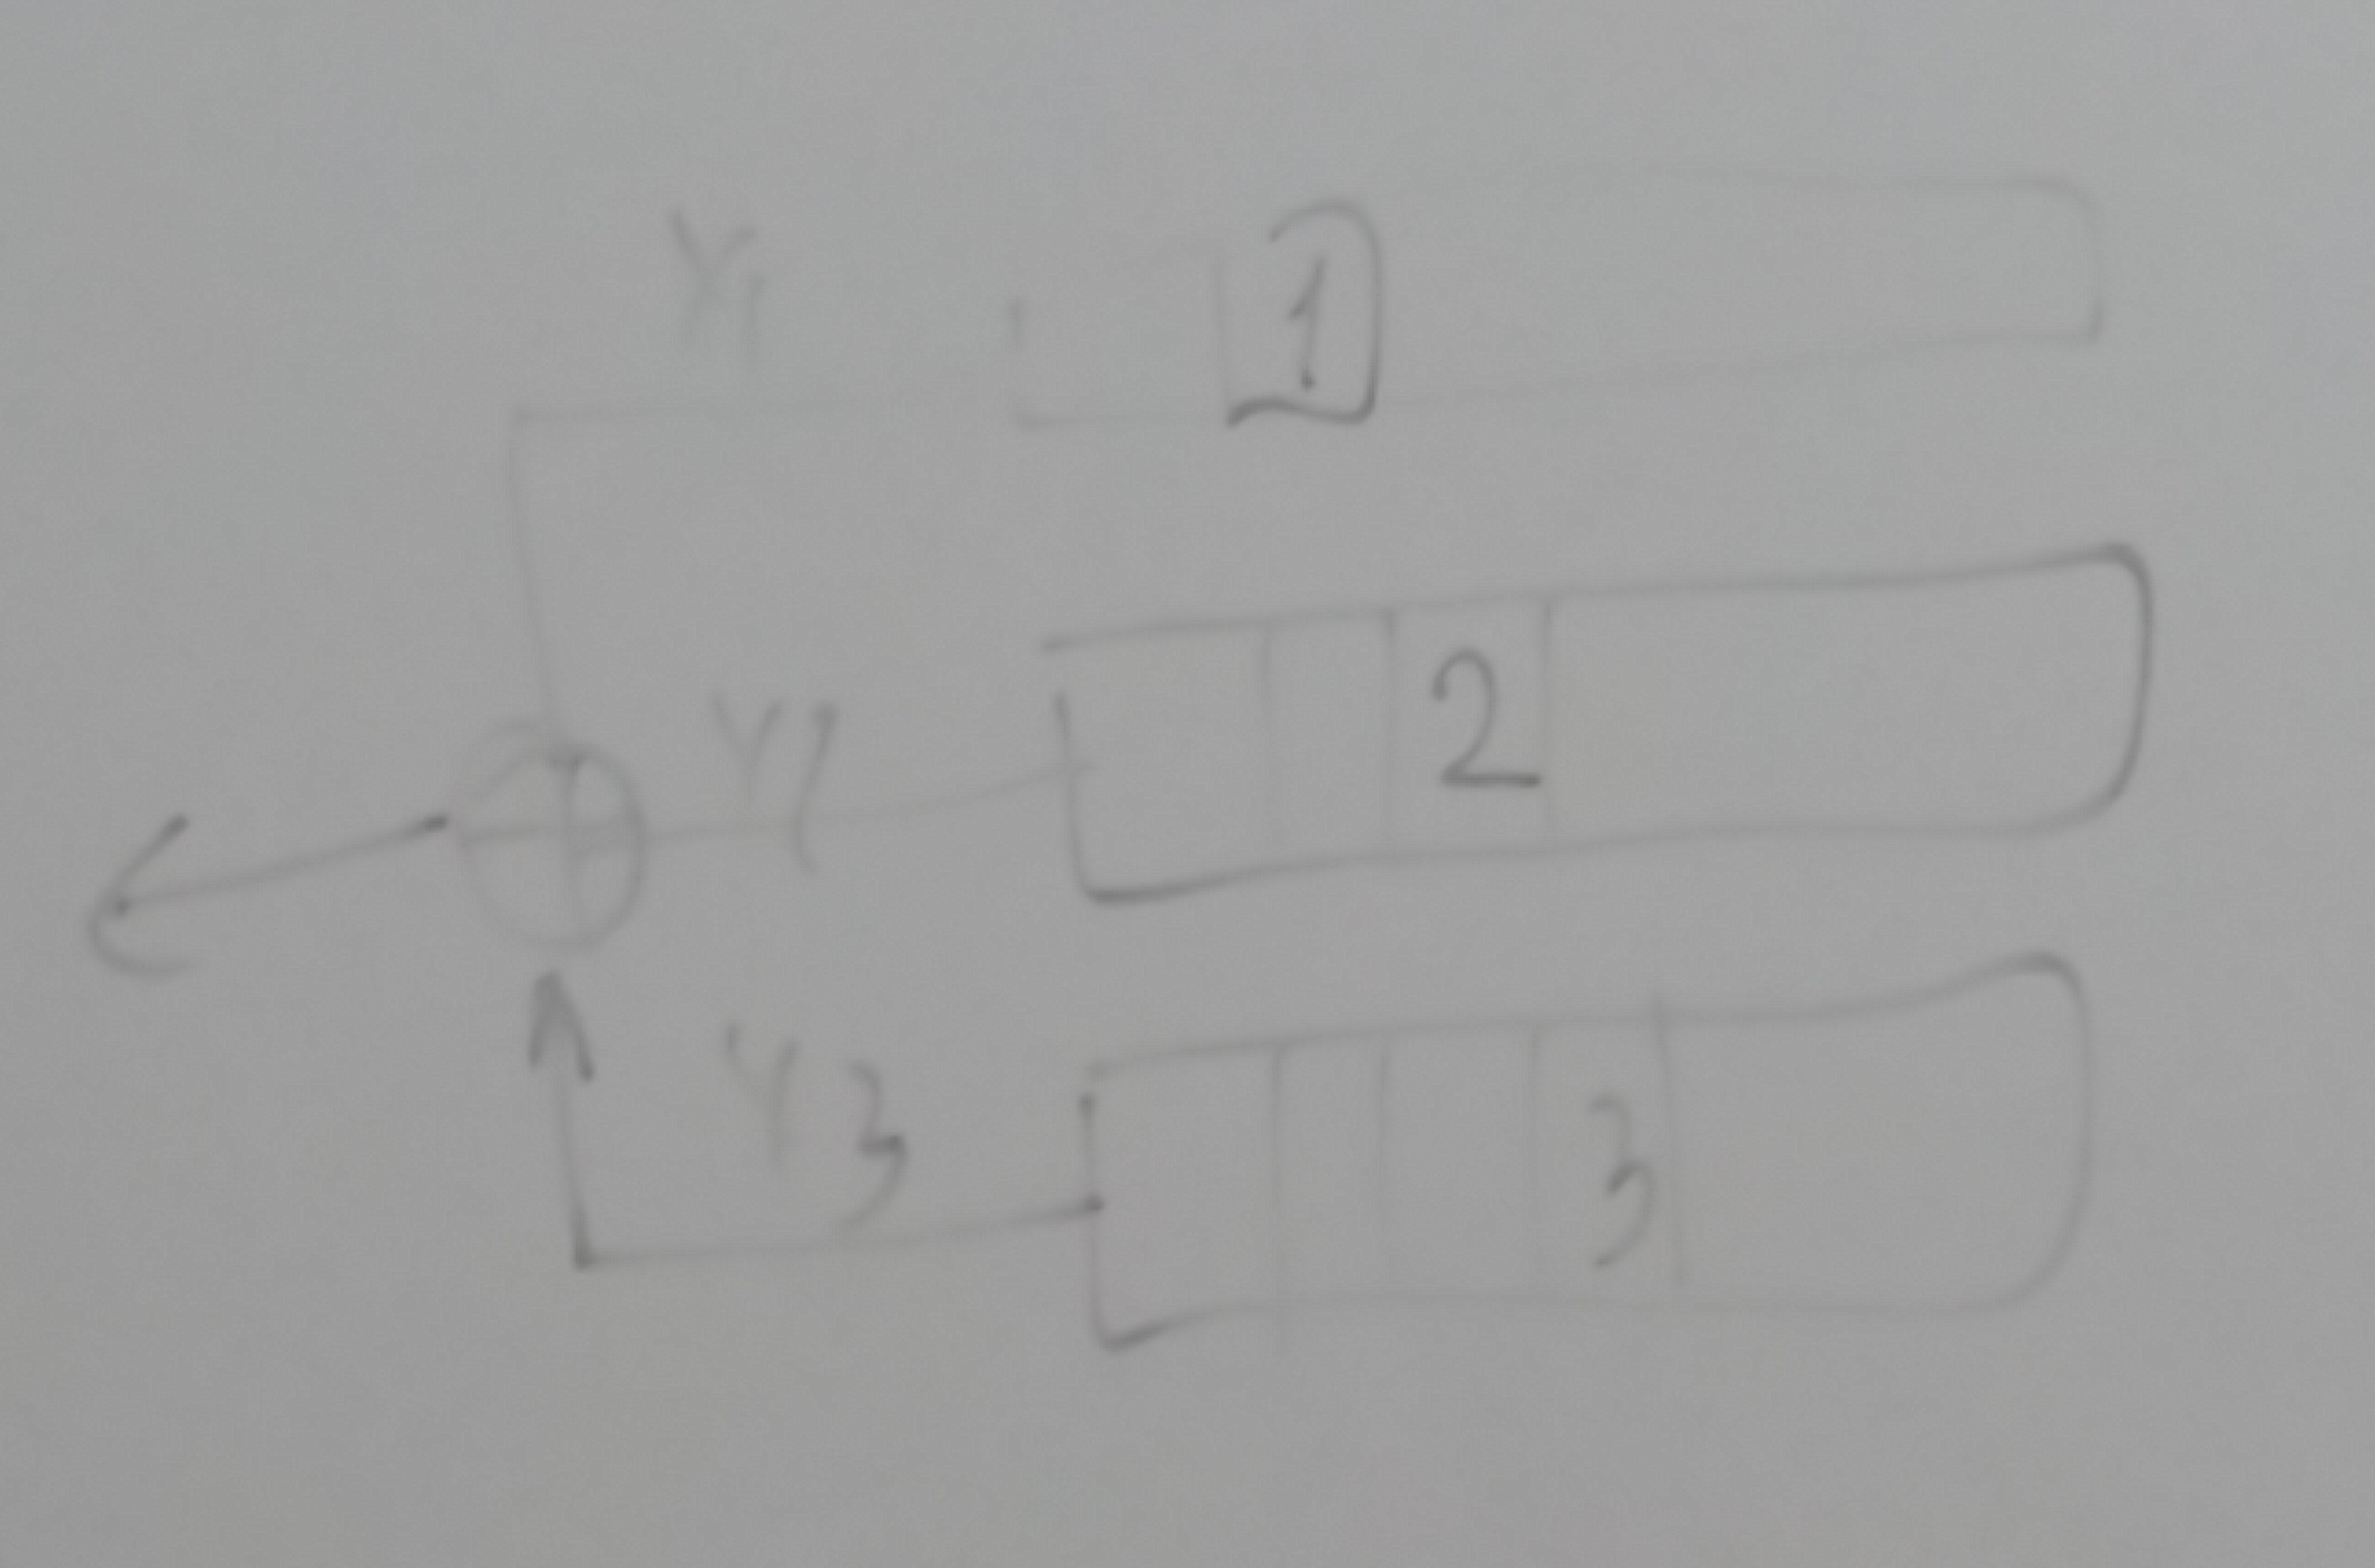 Y1 1
Y2 2
Y3 3